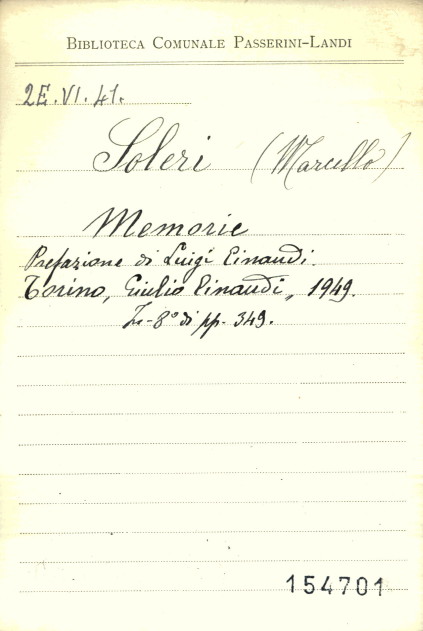 BIBLIOTECA COMUNALE PASSERINI-LANDI
2E.VI.41.
Soleri (Marcello)
Memorie
Prefazione di Luigi Einaudi.
Torino, Giulio Einaudi, 1949.
In-8° di pp. 349.
154701